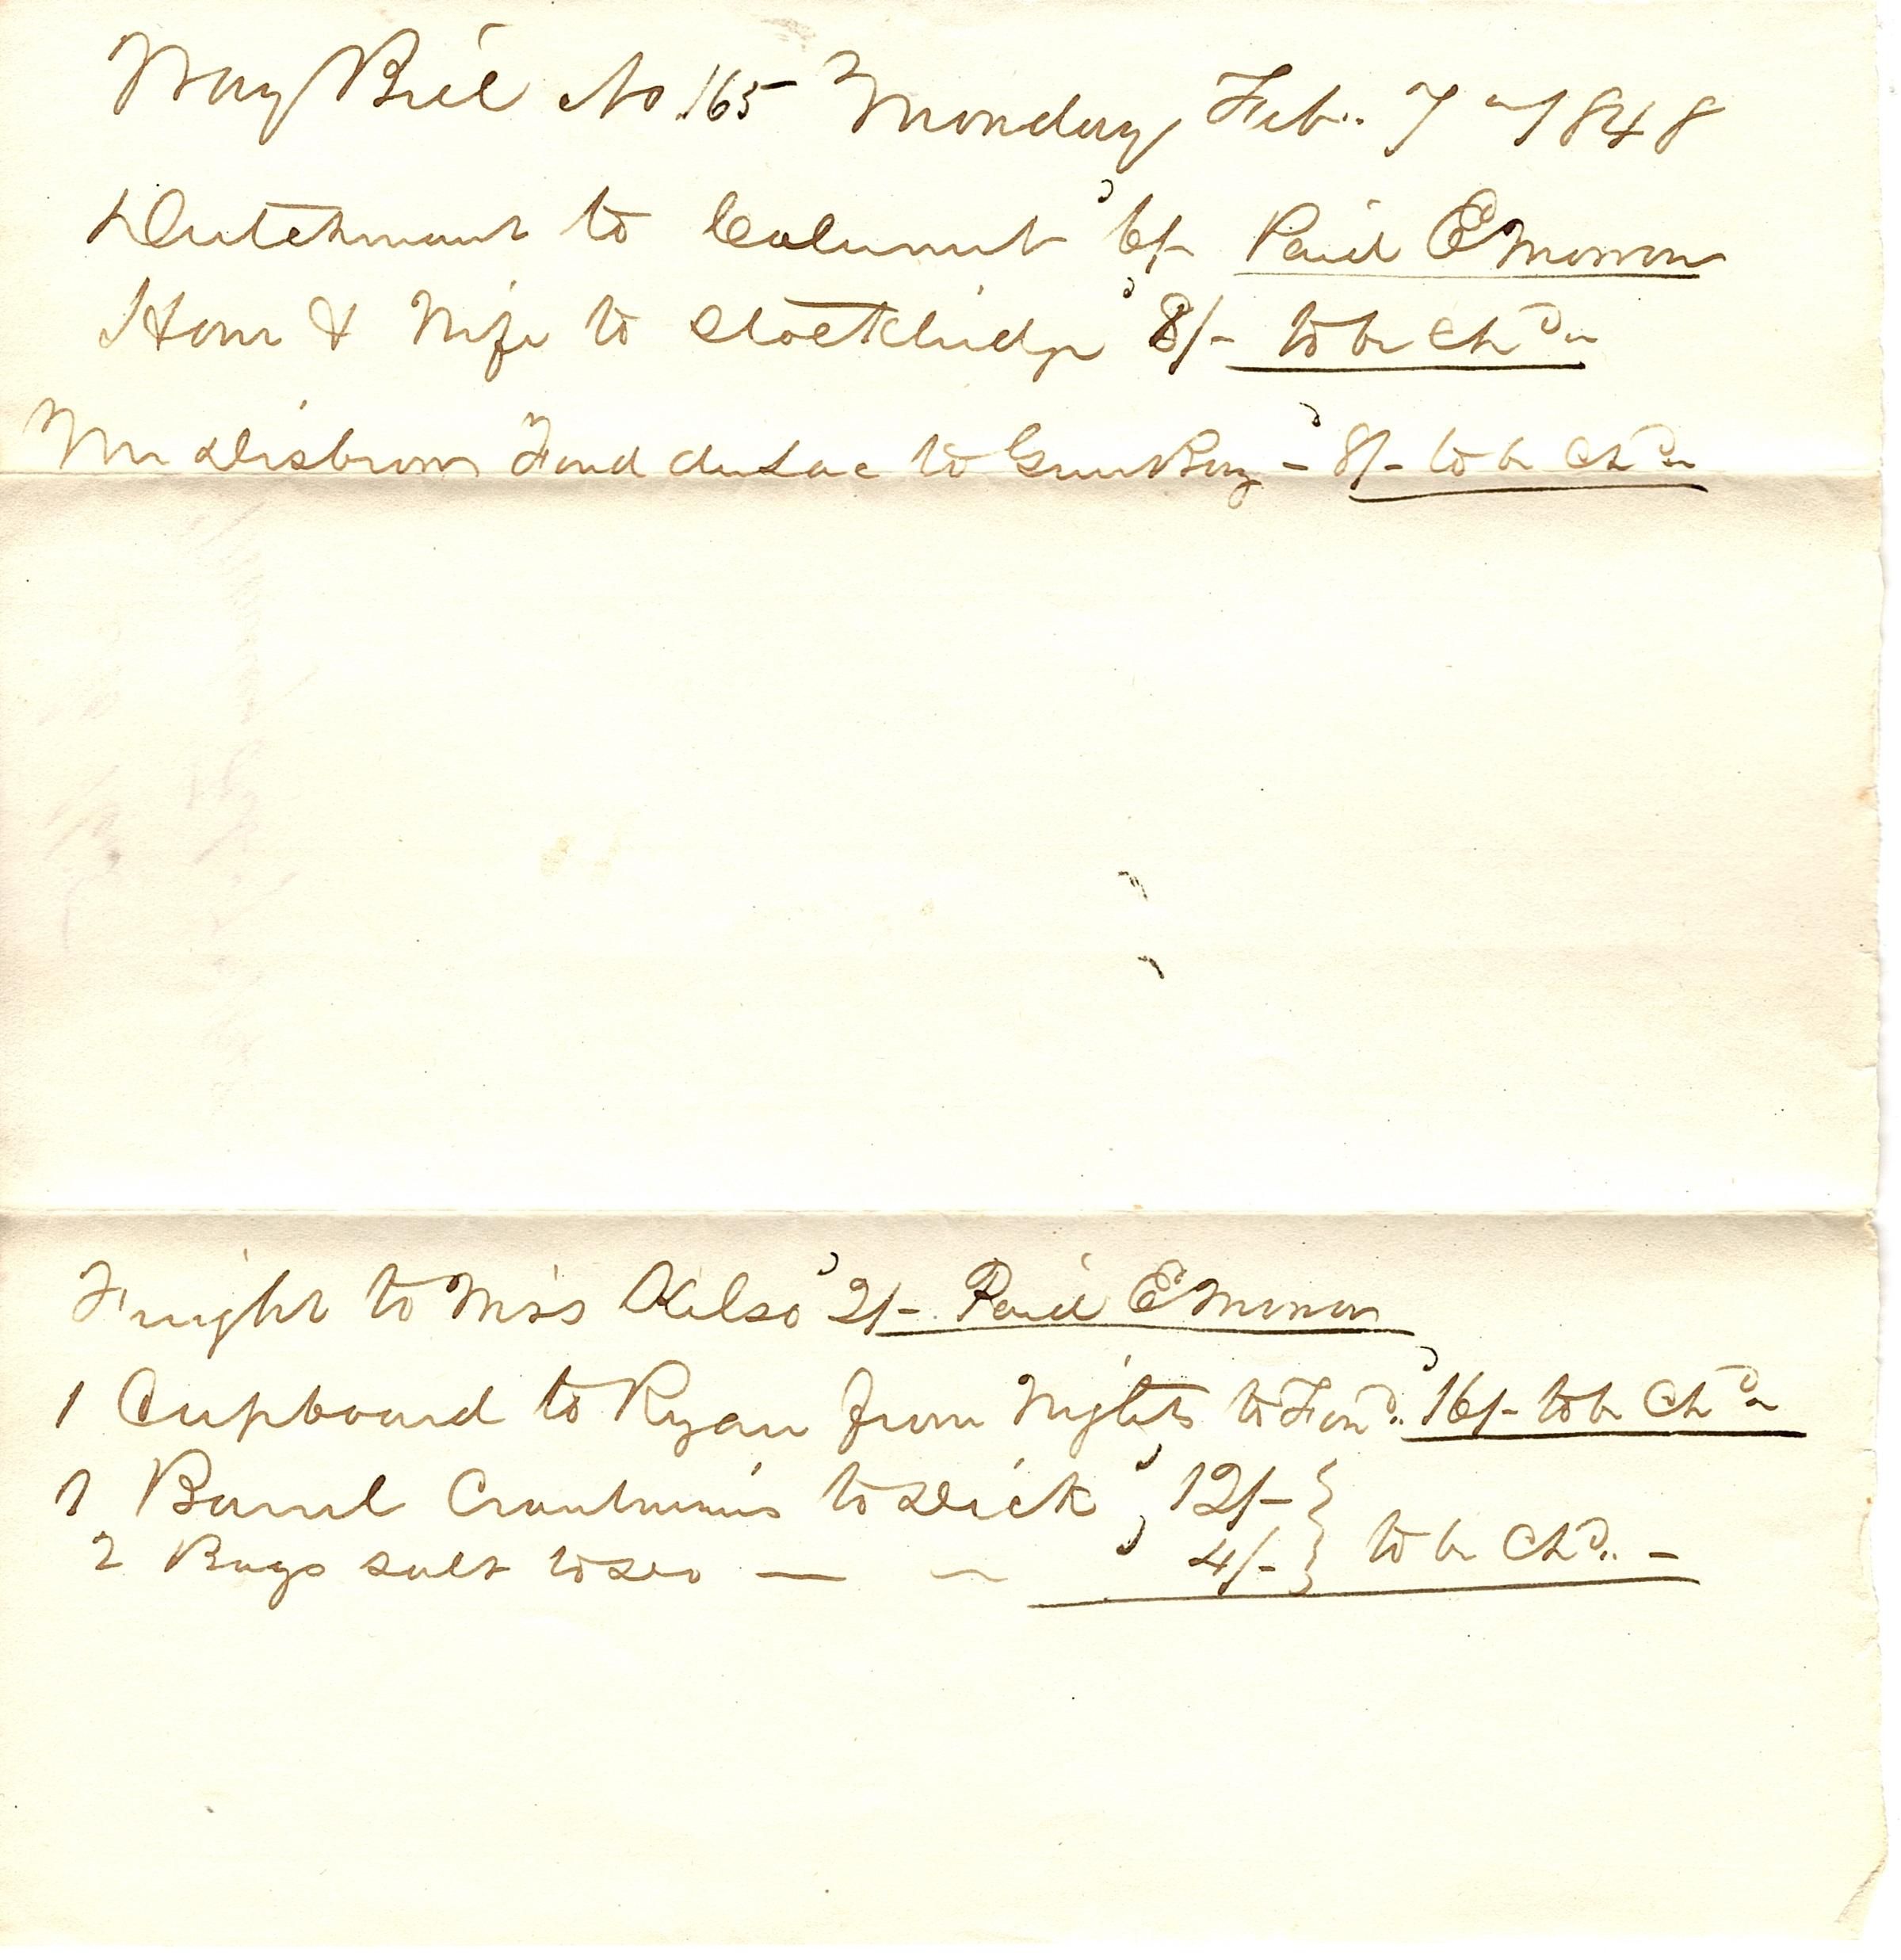 Way Bill No 165 Monday Feb.. 7 1848
Dutchman to Calumet 6/- Paid E Morrow
Horn & Wife to Stockbridge 8/- to be Chd..
Mr Disbrow Fond du Lac to Green Bay - 8/- to be Chd..
Freight to Miss Kelso 2/- Paid E Morrow
1 Cupboard to Ryan from Wrights to Fond.. 16/- to be Chd..
1 Barrel Cranberries to Dick 12/-
2 Bags salt to Do — — 4/- } to be Chd.. -